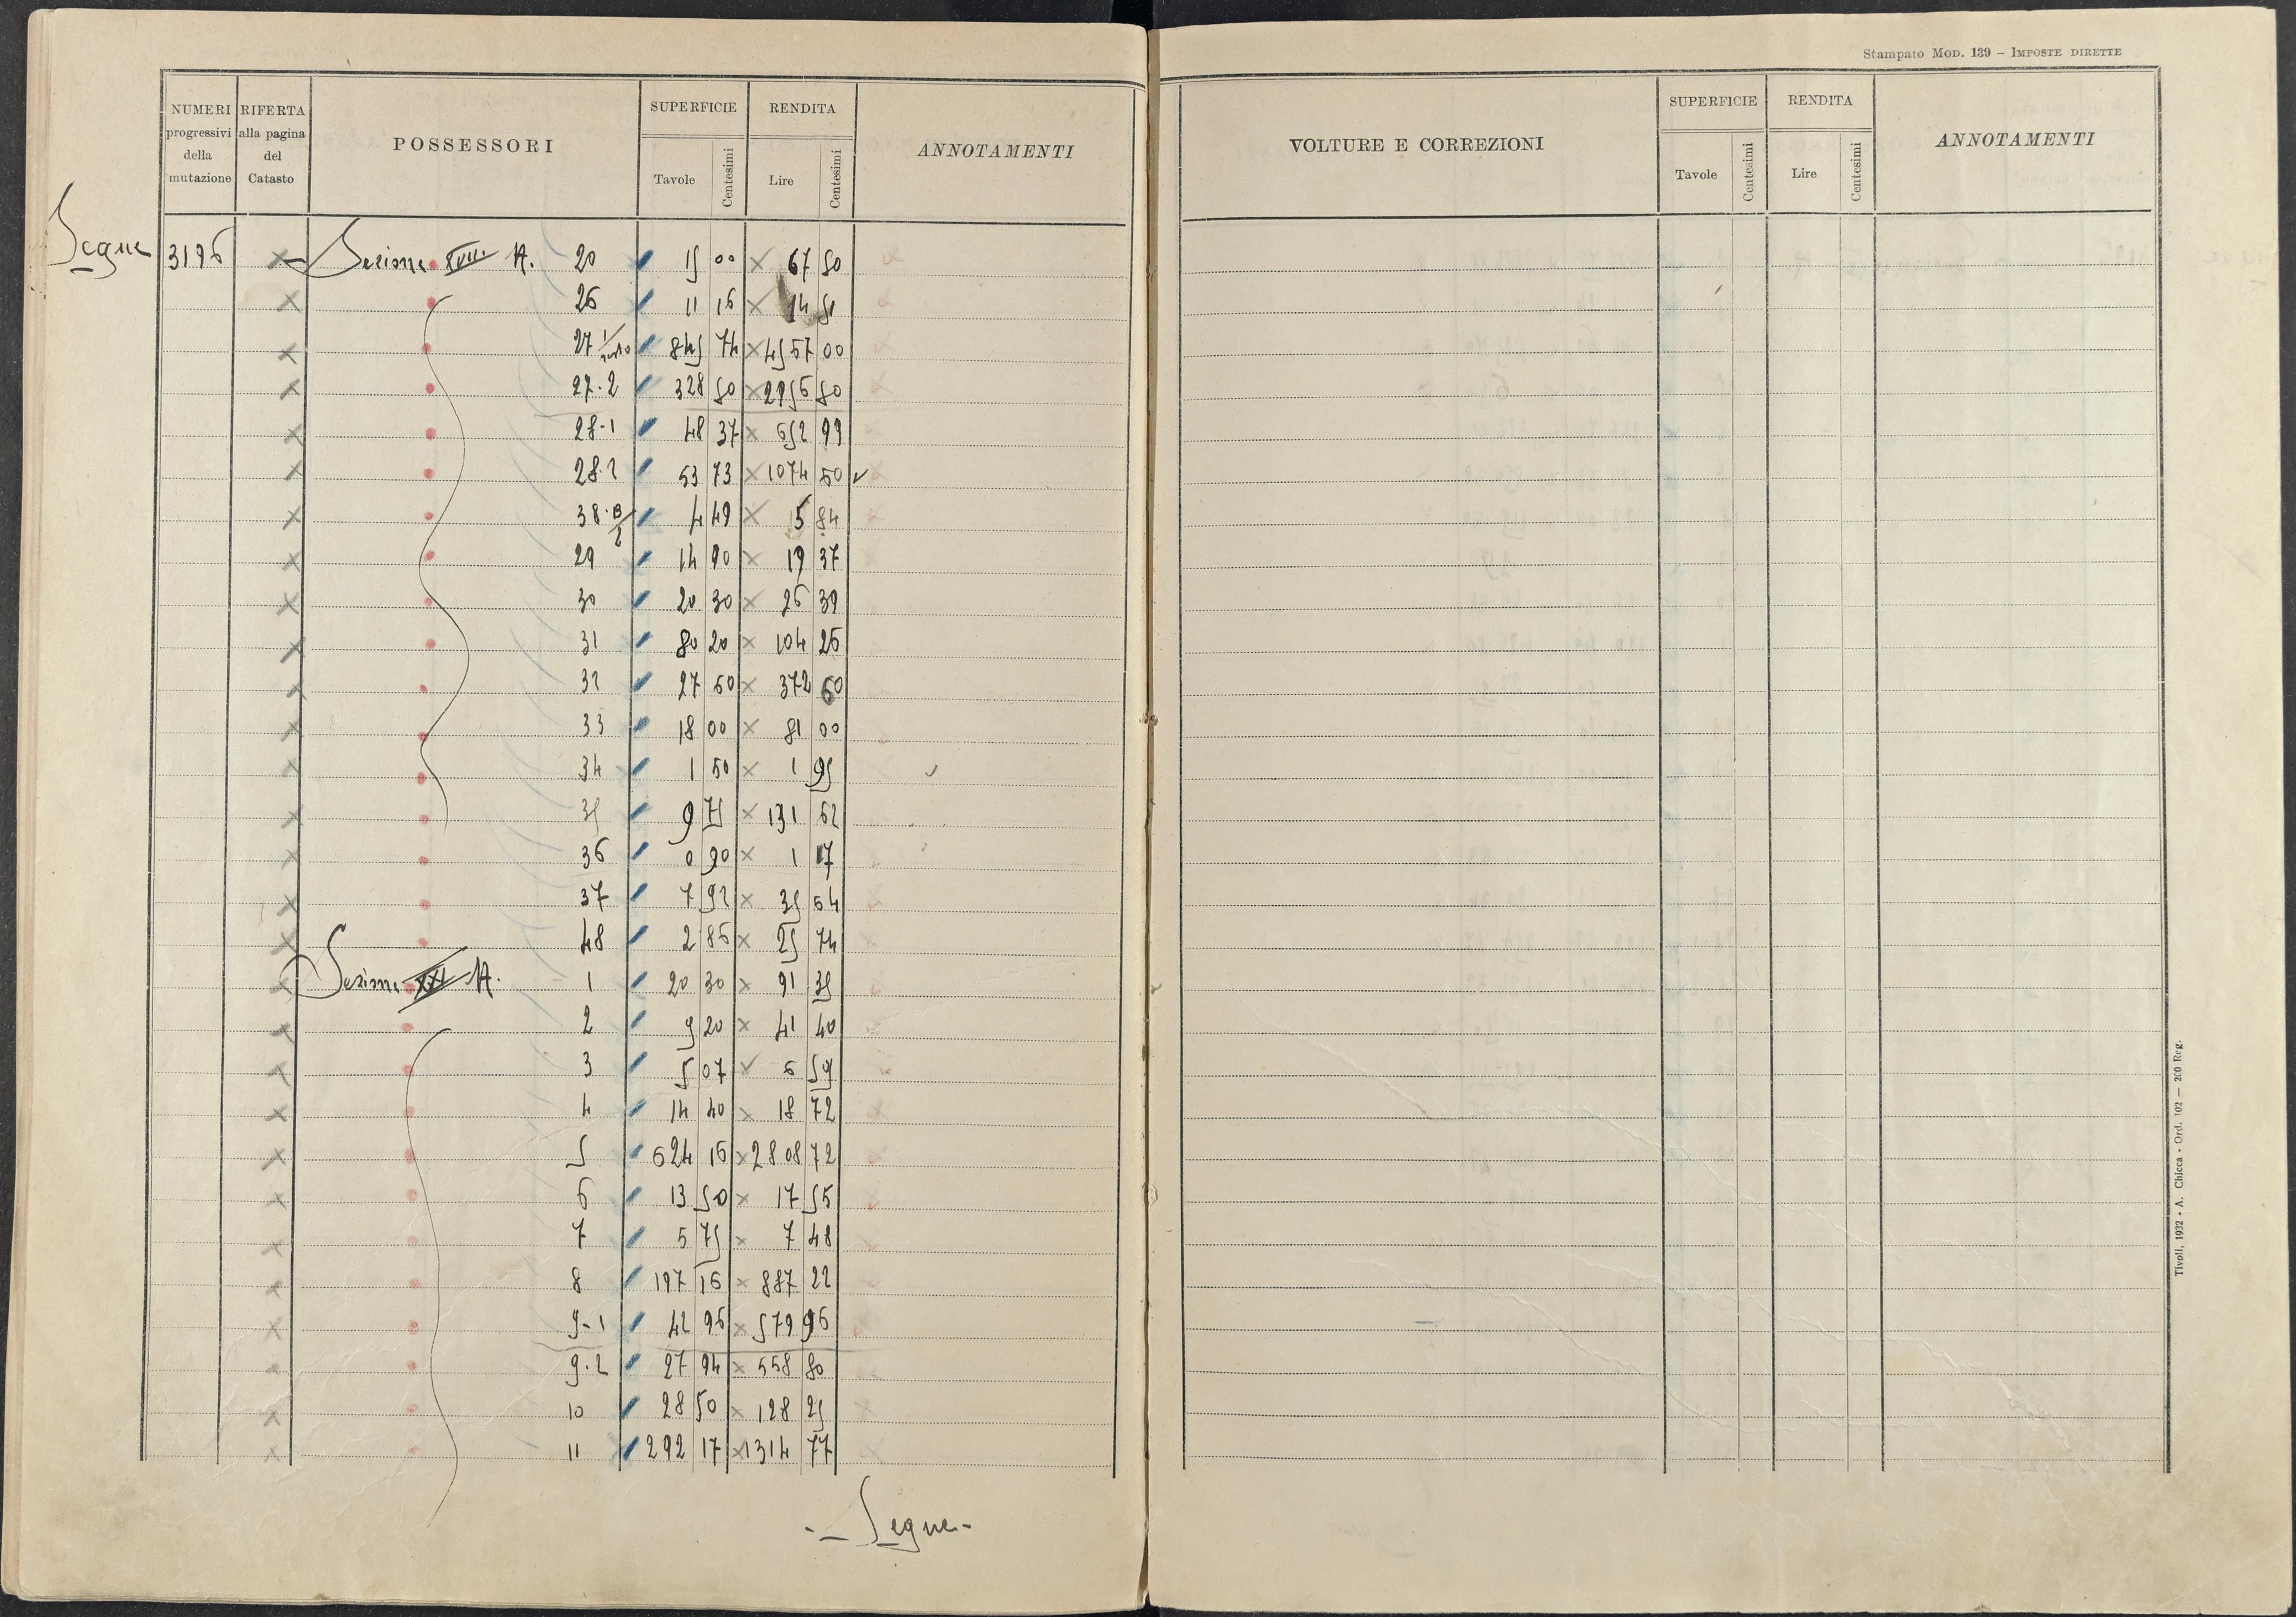 Stampato Mod. 139 – Imposte dirette
NUMERI progressivi della mutazione | RIFERTA alla pagina del Catasto | POSSESSORI | SUPERFICIE Tavole Centesimi | RENDITA Lire Centesimi | ANNOTAMENTI
VOLTURE E CORREZIONI | SUPERFICIE Tavole Centesimi | RENDITA Lire Centesimi | ANNOTAMENTI
Segue 3196 × Sezione XVIII. A. 20 15 00 × 67 50
× 26 11 16 × 14 51
× 27 1/ 845 74 × 4567 00
× 27.2 328 50 × 2956 50
× 28-1 48 37 × 652 99
× 28.2 53 73 × 1074 60 ✓
× 38.B/2 4 49 × 5 84
× 29 14 90 × 19 37
× 30 20 30 × 26 39
× 31 80 20 × 104 26
× 32 27 60 × 372 60
× 33 18 00 × 81 00
× 34 1 50 × 1 95
× 35 9 75 × 131 62
× 36 0 90 × 1 17
× 37 7 92 × 35 64
× 48 2 86 × 25 74
× Sezione XXI A. 1 20 30 × 91 35
× 2 9 20 × 41 40
× 3 5 07 ✓ 6 59
× 4 14 40 × 18 72
× 5 624 16 × 2808 72
× 6 13 50 × 17 55
× 7 5 75 × 7 48
× 8 197 16 × 887 22
× 9-1 42 96 × 579 96
× 9.2 27 94 × 558 80
× 10 28 50 × 128 25
× 11 292 17 × 1314 77
- Segue -
Tivoli, 1932 - A. Chicca - Ord. 102 — 200 Reg.